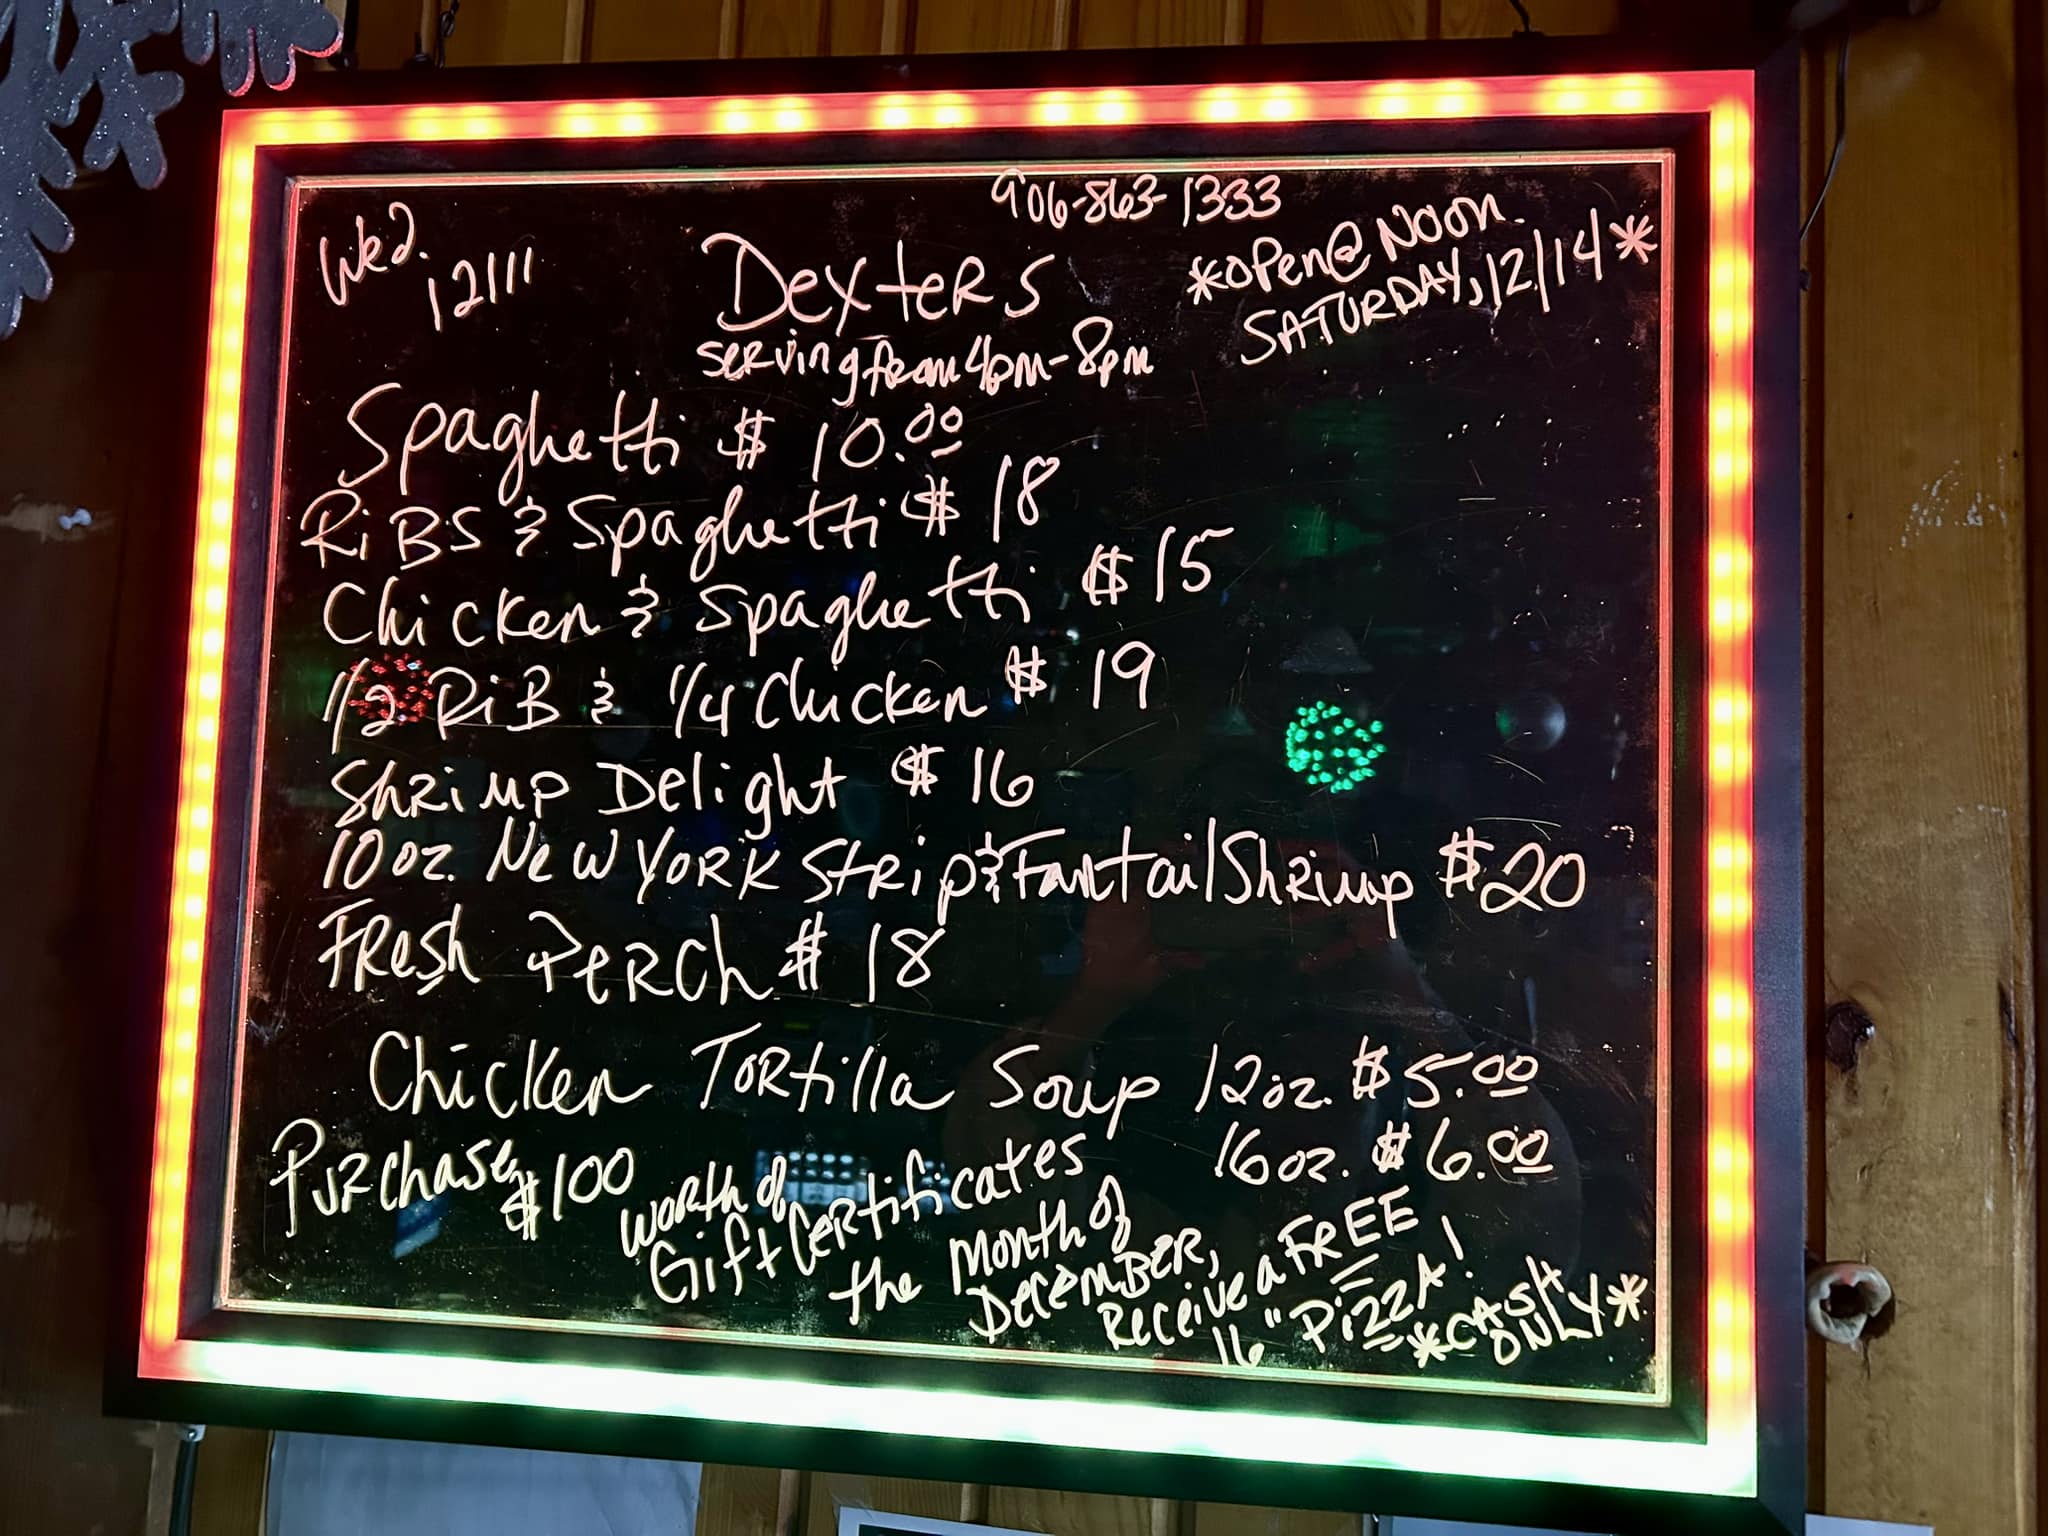 906-863-1333
Wed.
12/11
Dexters
*open@Noon.
SATURDAY, 12/14*
serving from 4pm-8pm
Spaghetti $10.00
RiBS & Spaghetti $18
Chicken & Spaghetti $15
1/2 RiB & 1/4 Chicken $19
Shrimp Delight $16
10 oz. New York Strip & Fantail Shrimp $20
Fresh Perch $18
Chicken Tortilla Soup 12oz. $5.00
16oz. $6.00
Purchase
$100
worth of
Gift Certificates
the month of
December,
Receive a FREE
16" PizzA!
*CASH
ONLY*